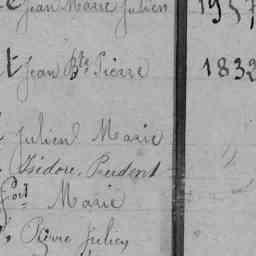 Jean Marie Julien
Jean Bte Pierre 1832
Julien Marie
Isidore, Prudent
Marie
Pierre Julien